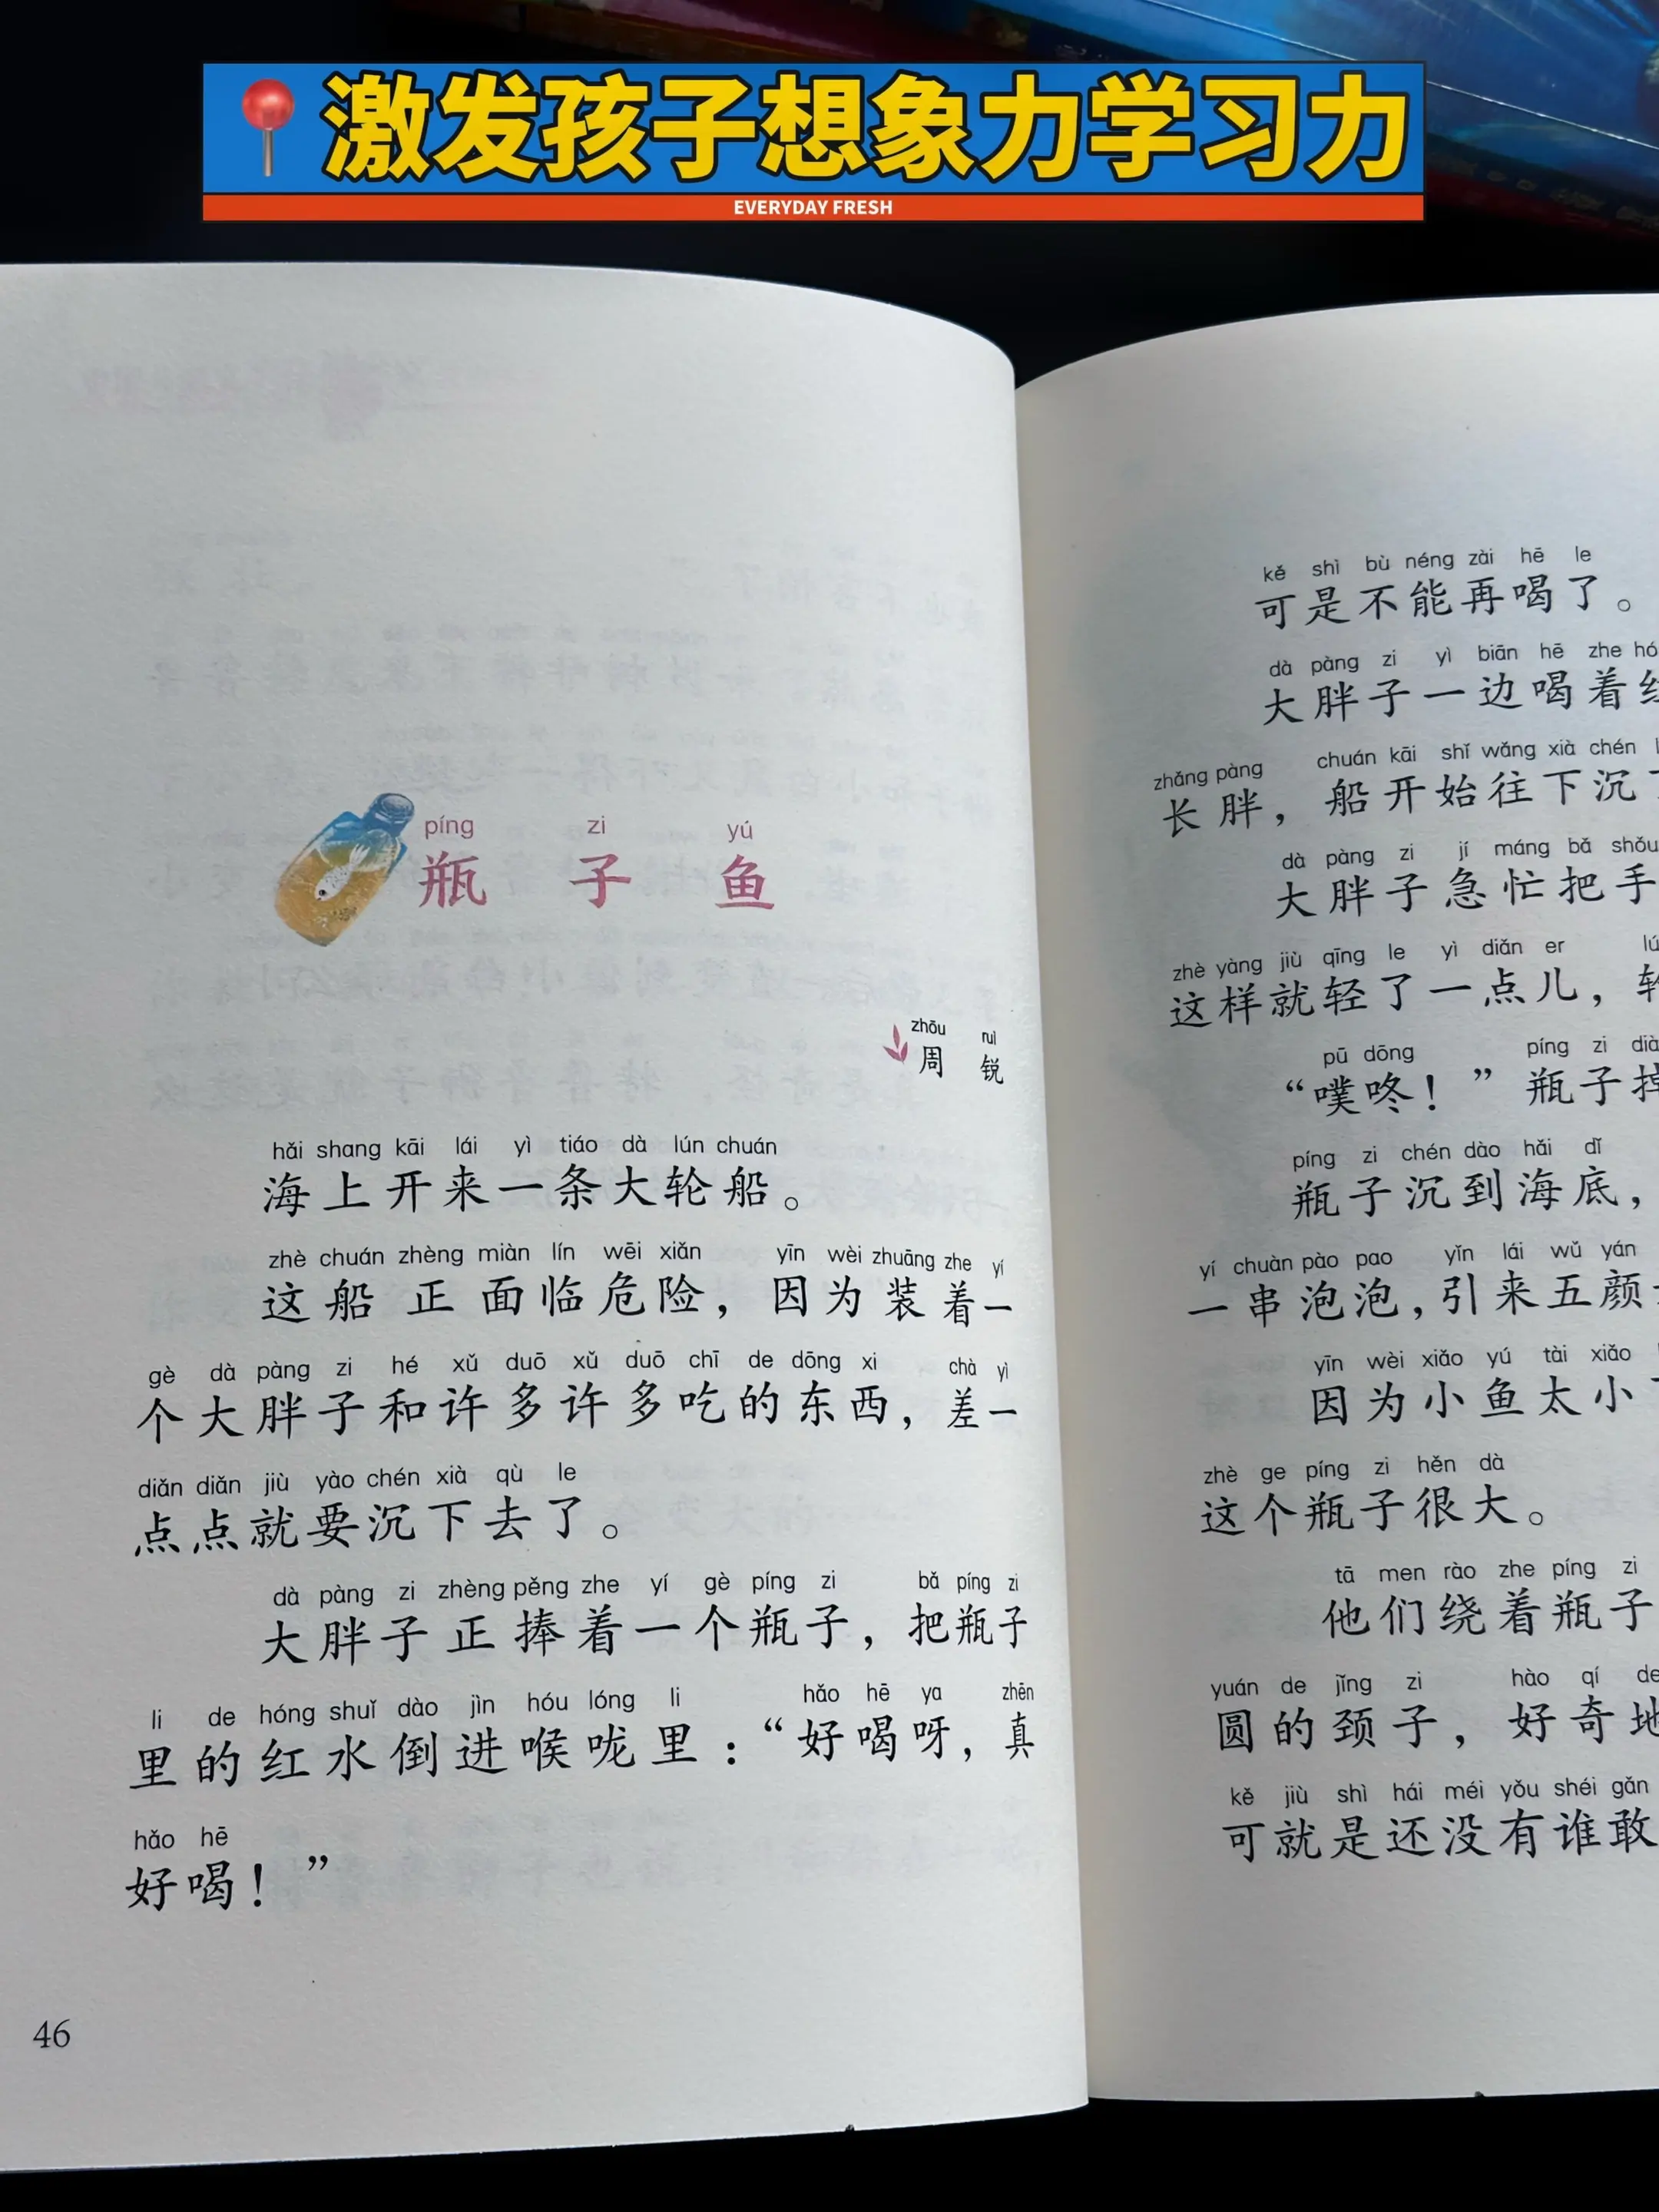 激发孩子想象力学习力
EVERYDAY FRESH
píng zi yú
瓶子鱼
zhōu ruì
周锐
hǎi shang kāi lái yì tiáo dà lún chuán
海上开来一条大轮船。
zhè chuán zhèng miàn lín wēi xiǎn yīn wèi zhuāng zhe yí
这船正面临危险，因为装着一
gè dà pàng zi hé xǔ duō xǔ duō chī de dōng xi chà yì
个大胖子和许多许多吃的东西，差一
diǎn diǎn jiù yào chén xià qù le
点点就要沉下去了。
dà pàng zi zhèng pěng zhe yí gè píng zi bǎ píng zi
大胖子正捧着一个瓶子，把瓶子
li de hóng shuǐ dào jìn hóu lóng li hǎo hē ya zhēn
里的红水倒进喉咙里：“好喝呀，真
hǎo hē
好喝！”
46
kě shì bù néng zài hē le
可是不能再喝了。
dà pàng zi yì biān hē zhe
大胖子一边喝着
zhǎng pàng chuán kāi shǐ wǎng xià chén
长胖，船开始往下沉
dà pàng zi jí máng bǎ shǒu
大胖子急忙把手
zhè yàng jiù qīng le yì diǎn er
这样就轻了一点儿，
pū dōng píng zi
“噗咚！”瓶子
píng zi chén dào hǎi dǐ
瓶子沉到海底，
yí chuàn pào pao yǐn lái wǔ yán
一串泡泡，引来五颜
yīn wèi xiǎo yú tài xiǎo
因为小鱼太小
zhè ge píng zi hěn dà
这个瓶子很大。
tā men rào zhe píng zi
他们绕着瓶子
yuán de jǐng zi hào qí de
圆的颈子，好奇地
kě jiù shì hái méi yǒu shéi gǎn
可就是还没有谁敢